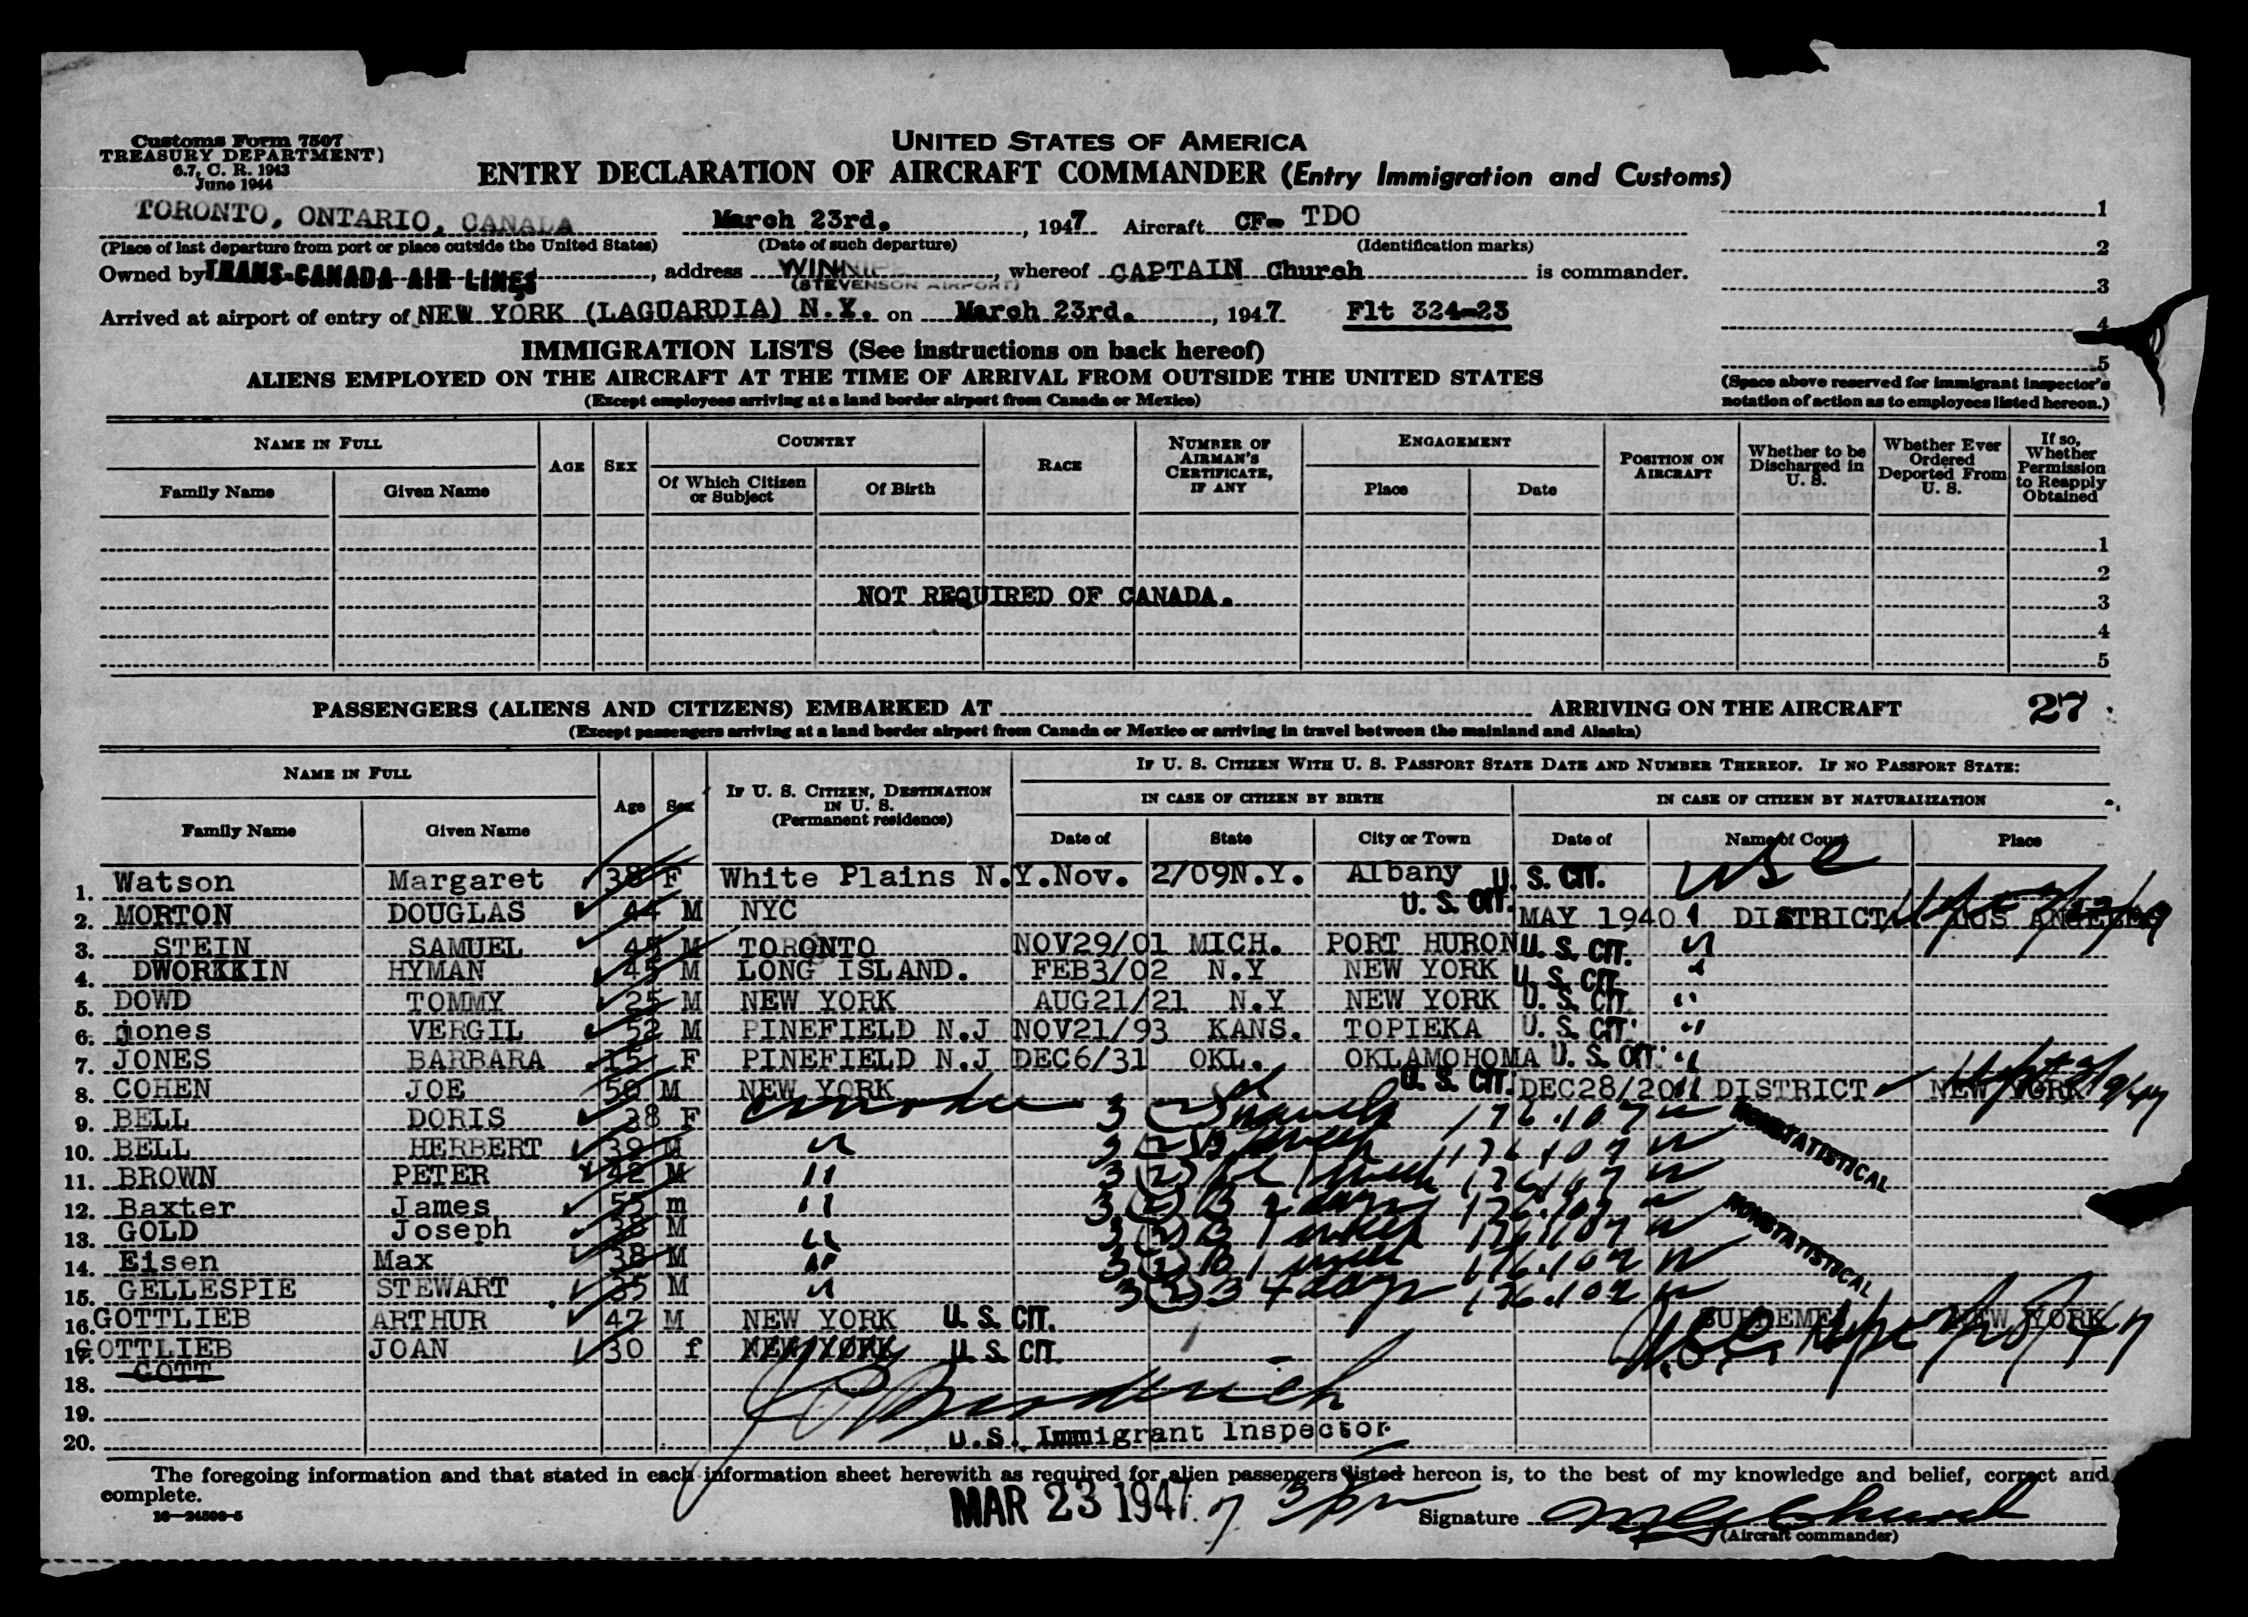 Customs Form 7507
TREASURY DEPARTMENT)
6.7, C. R. 1943
June 1944
UNITED STATES OF AMERICA
ENTRY DECLARATION OF AIRCRAFT COMMANDER (Entry Immigration and Customs)
TORONTO, ONTARIO, CANADA March 23rd. , 1947 Aircraft CF- TDO
(Place of last departure from port or place outside the United States) (Date of such departure) (Identification marks)
Owned by TRANS-CANADA AIR LINES , address (STEVENSON AIRPORT) , whereof CAPTAIN Church is commander.
Arrived at airport of entry of NEW YORK (LAGUARDIA) N.Y. on March 23rd. , 1947 Flt 324-23
1
2
3
4
5
(Space above reserved for immigrant inspector's
notation of action as to employees listed hereon.)
IMMIGRATION LISTS (See instructions on back hereof)
ALIENS EMPLOYED ON THE AIRCRAFT AT THE TIME OF ARRIVAL FROM OUTSIDE THE UNITED STATES
(Except employees arriving at a land border airport from Canada or Mexico)
NAME IN FULL AGE SEX COUNTRY RACE NUMBER OF AIRMAN'S CERTIFICATE, IF ANY ENGAGEMENT POSITION ON AIRCRAFT Whether to be Discharged in U. S. Whether Ever Ordered Deported From U. S. If so, Whether Permission to Reapply Obtained
Family Name Given Name Of Which Citizen or Subject Of Birth Place Date
1
2
NOT REQUIRED OF CANADA. 3
4
5
PASSENGERS (ALIENS AND CITIZENS) EMBARKED AT ARRIVING ON THE AIRCRAFT 27
(Except passengers arriving at a land border airport from Canada or Mexico or arriving in travel between the mainland and Alaska)
NAME IN FULL Age Sex IF U. S. CITIZEN, DESTINATION IN U. S. (Permanent residence) IF U. S. CITIZEN WITH U. S. PASSPORT STATE DATE AND NUMBER THEREOF. IF NO PASSPORT STATE:
IN CASE OF CITIZEN BY BIRTH IN CASE OF CITIZEN BY NATURALIZATION
Family Name Given Name Date of State City or Town Date of Name of Court Place
1. Watson Margaret 38 F White Plains N.Y. Nov. 2/09 N.Y. Albany U. S. CIT. use
2. MORTON DOUGLAS 44 M NYC U. S. CIT. MAY 1940 DISTRICT LOS ANGELES
3. STEIN SAMUEL 45 M TORONTO NOV29/01 MICH. PORT HURON U. S. CIT. "
4. DWORKKIN HYMAN 45 M LONG ISLAND. FEB3/02 N.Y NEW YORK U. S. CIT. "
5. DOWD TOMMY 25 M NEW YORK AUG21/21 N.Y NEW YORK U. S. CIT. "
6. jones VERGIL 52 M PINEFIELD N.J NOV21/93 KANS. TOPIEKA U. S. CIT. "
7. JONES BARBARA 15 F PINEFIELD N.J DEC6/31 OKL. OKLAMOHOMA U. S. CIT. "
8. COHEN JOE 50 M NEW YORK U. S. CIT. DEC28/20 DISTRICT NEW YORK
9. BELL DORIS 38 F 3 (2) 176.107
10. BELL HERBERT 39 M " 3 (2) B 176.107
11. BROWN PETER 42 M " 3 (2) 1 week 176.107
12. Baxter James 55 m " 3 (2) B 2 days 176.107
13. GOLD Joseph 38 M " 3 (2) B 1 week 176.107
14. Eisen Max 38 M " 3 (2) B 1 week 176.107
15. GELLESPIE STEWART 35 M " 3 (2) B 4 days 176.107
NONSTATISTICAL
NONSTATISTICAL
16. GOTTLIEB ARTHUR 47 M NEW YORK U. S. CIT. SUPREME NEW YORK
17. GOTTLIEB JOAN 30 f NEW YORK U. S. CIT.
18. GOTT
19.
20. U.S. Immigrant Inspector
The foregoing information and that stated in each information sheet herewith as required for alien passengers listed hereon is, to the best of my knowledge and belief, correct and
complete.
16—24500-5
MAR 23 1947
Signature
(Aircraft commander)